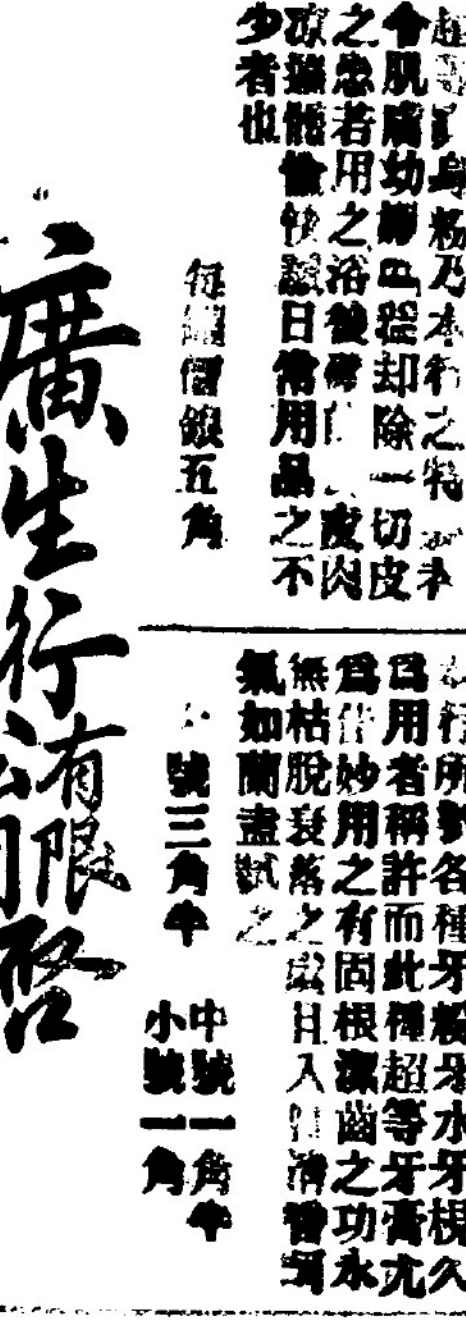 超等爽身粉乃本行之特
令肌膚幼嫩且能却除一切皮
之患若用之浴後 皮肉
涼 體愉快誠日常用品之不
少者也
每 價銀五角
本行所製各種牙粉牙水牙梘久
爲用者稱許而此種超等牙膏尤
爲 妙用之有固根潔齒之功永
無枯脫衰落之 且入口清香
氣如蘭盍試之
號三角半
中號一角半
小號一角
廣生行有限公司啓